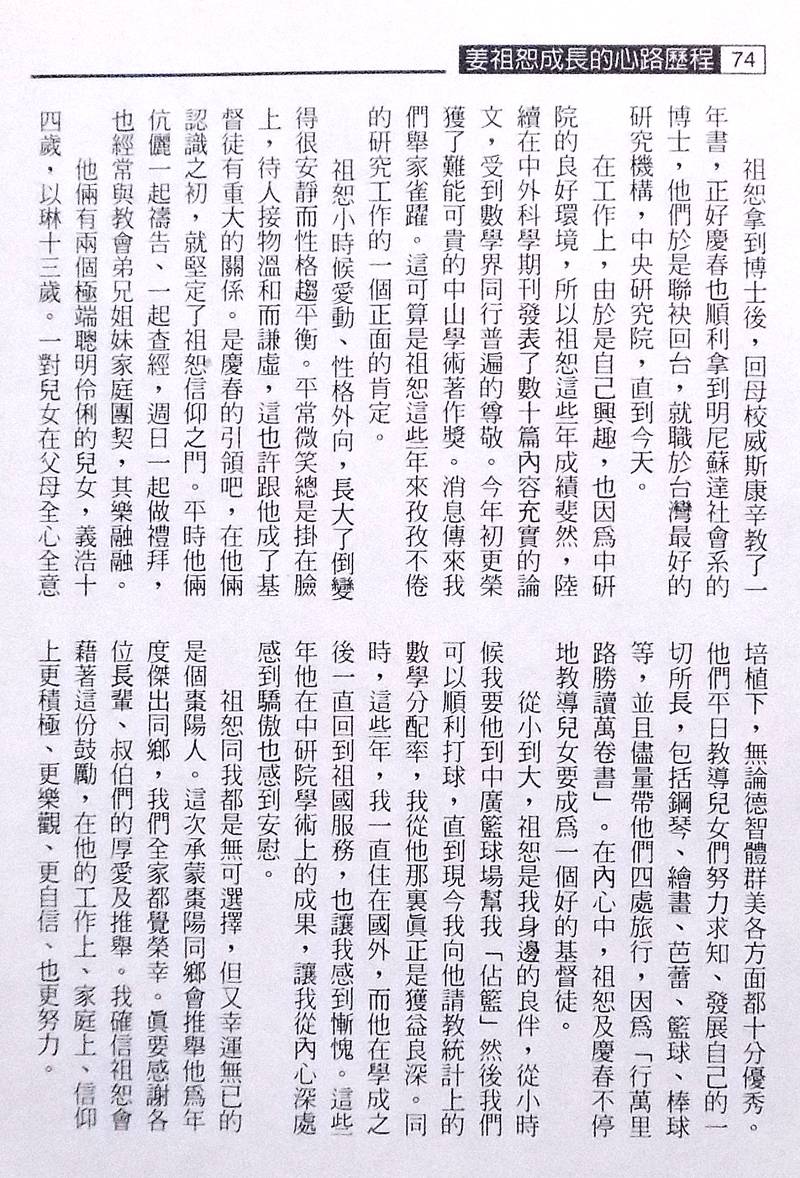 姜祖恕成長的心路歷程 74
祖恕拿到博士後，回母校威斯康辛教了一
年書，正好慶春也順利拿到明尼蘇達社會系的
博士，他們於是聯袂回台，就職於台灣最好的
研究機構，中央研究院，直到今天。
在工作上，由於是自己興趣，也因爲中研
院的良好環境，所以祖恕這些年成績斐然，陸
續在中外科學期刊發表了數十篇內容充實的論
文，受到數學界同行普遍的尊敬。今年初更榮
獲了難能可貴的中山學術著作獎。消息傳來我
們舉家雀躍。這可算是祖恕這些年來孜孜不倦
的研究工作的一個正面的肯定。
祖恕小時候愛動、性格外向，長大了倒變
得很安靜而性格趨平衡。平常微笑總是掛在臉
上，待人接物溫和而謙虛，這也許跟他成了基
督徒有重大的關係。是慶春的引領吧，在他倆
認識之初，就堅定了祖恕信仰之門。平時他倆
伉儷一起禱告、一起查經，週日一起做禮拜，
也經常與教會弟兄姐妹家庭團契，其樂融融。
他倆有兩個極端聰明伶俐的兒女，義浩十
四歲，以琳十三歲。一對兒女在父母全心全意
培植下，無論德智體群美各方面都十分優秀。
他們平日教導兒女們努力求知、發展自己的一
切所長，包括鋼琴、繪畫、芭蕾、籃球、棒球
等，並且儘量帶他們四處旅行，因爲「行萬里
路勝讀萬卷書」。在內心中，祖恕及慶春不停
地教導兒女要成爲一個好的基督徒。
從小到大，祖恕是我身邊的良伴，從小時
候我要他到中廣籃球場幫我「佔籃」然後我們
可以順利打球，直到現今我向他請教統計上的
數學分配率，我從他那裏眞正是獲益良深。同
時，這些年，我一直住在國外，而他在學成之
後一直回到祖國服務，也讓我感到慚愧。這些
年他在中研院學術上的成果，讓我從內心深處
感到驕傲也感到安慰。
祖恕同我都是無可選擇，但又幸運無已的
是個棗陽人。這次承蒙棗陽同鄉會推舉他爲年
度傑出同鄉，我們全家都覺榮幸。眞要感謝各
位長輩、叔伯們的厚愛及推舉。我確信祖恕會
藉著這份鼓勵，在他的工作上、家庭上、信仰
上更積極、更樂觀、更自信、也更努力。